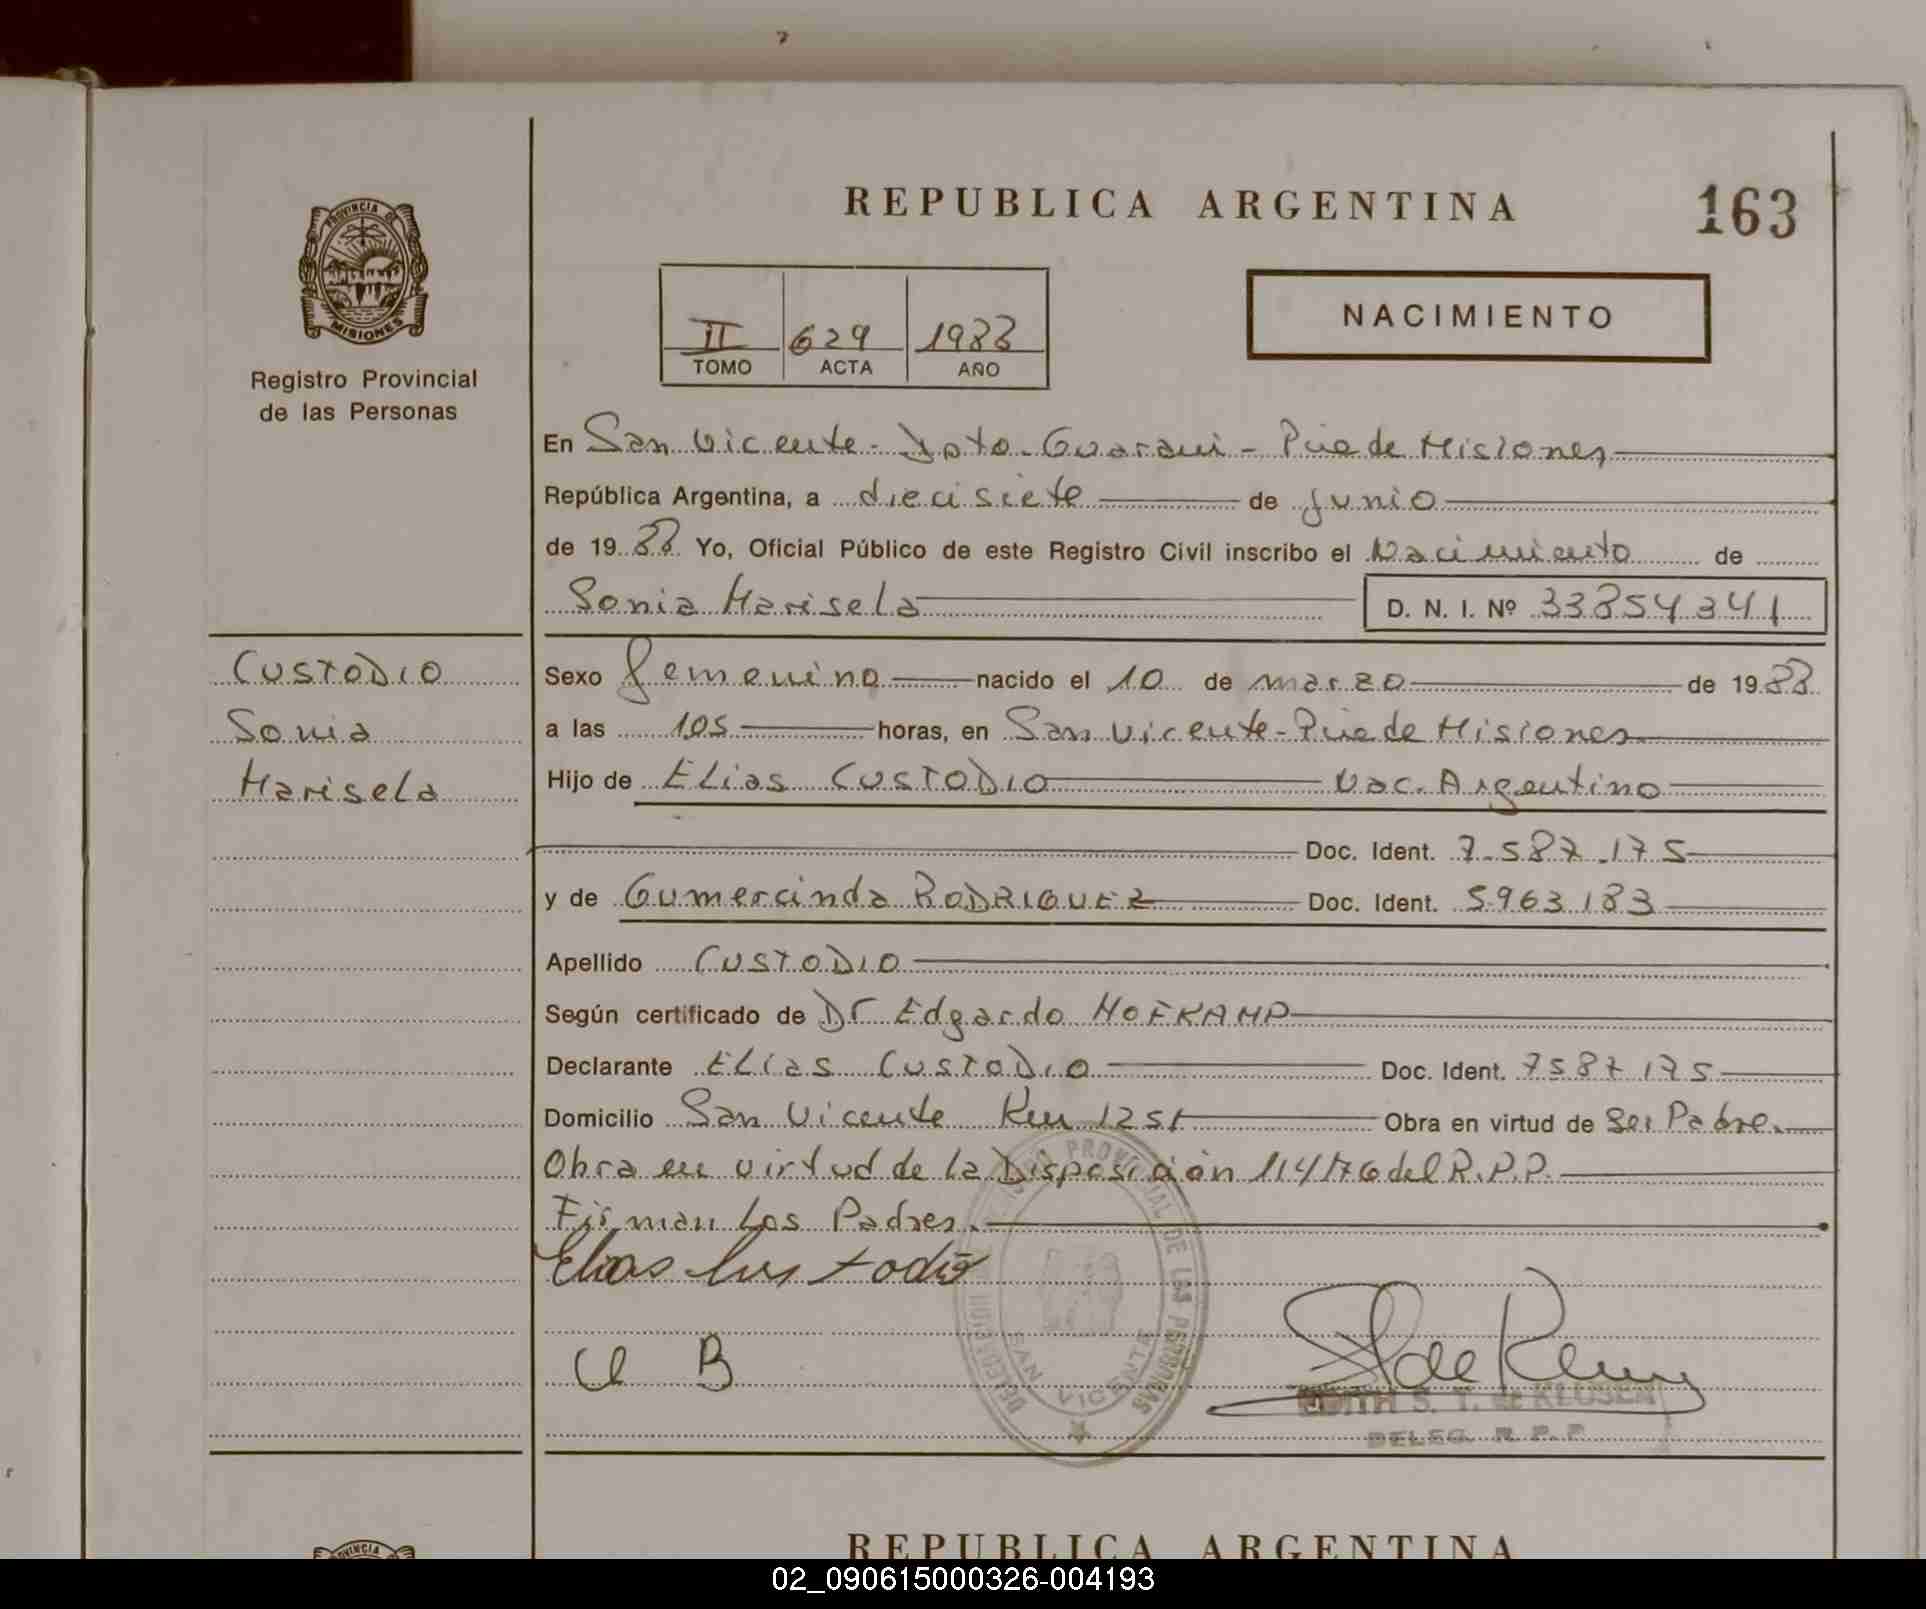 REPUBLICA ARGENTINA
163
PROVINCIA DE
MISIONES
Registro Provincial
de las Personas
II 629 1988
TOMO ACTA AÑO
NACIMIENTO
En San Vicente - Dpto. Guarani - Pcia de Misiones
República Argentina, a diecisiete de junio
de 1988 Yo, Oficial Público de este Registro Civil inscribo el Nacimiento de
Sonia Marisela D. N. I. Nº 33854341
CUSTODIO
Sonia
Marisela
Sexo femenino nacido el 10 de marzo de 1988
a las 105 horas, en San Vicente - Pcia de Misiones
Hijo de ELias CUSTODIO Nac. Argentino
Doc. Ident. 7.587.175
y de Gumercinda RODRIGUEZ Doc. Ident. 5963183
Apellido CUSTODIO
Según certificado de Dr Edgardo HOFKAMP
Declarante ELias CUSTODIO Doc. Ident. 7587175
Domicilio San Vicente Km 1251 Obra en virtud de Ser Padre.
Obra en virtud de la Disposición 114/76 del R.P.P.
Firman Los Padres.
Elias Custodio
PROVINCIAL DE LAS PERSONAS
SAN VICENTE
EDITH S. T. de KLUSEN
DELEG. R. P. P.
PROVINCIA
REPUBLICA ARGENTINA
02_090615000326-004193